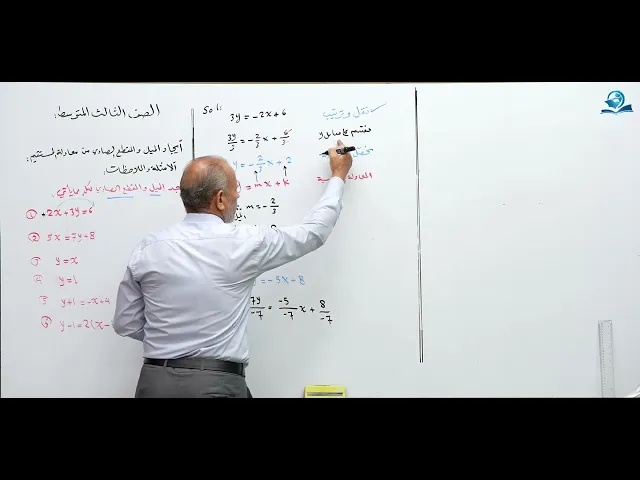 الصف الثالث المتوسط:
أيجاد الميل والمقطع الصادي من معادلة المستقيم:
الامثلة والملاحظات:
جد الميل والمقطع الصادي لكل مما يأتي:
① 2x+3y=6
② 5x=7y+8
3 y=x
4 y=1
5 y+1=-x+4
⑥ y-1=2(x-
Sol:
3y = -2x+6
3y/3 = -2/3 x + 6/3
y = -2/3 x + 2
= mx + k
m = -2/3
= -5x+8
7y/-7 = -5/-7 x + 8/-7
ننقل ونرتب
نقسم على معامل y